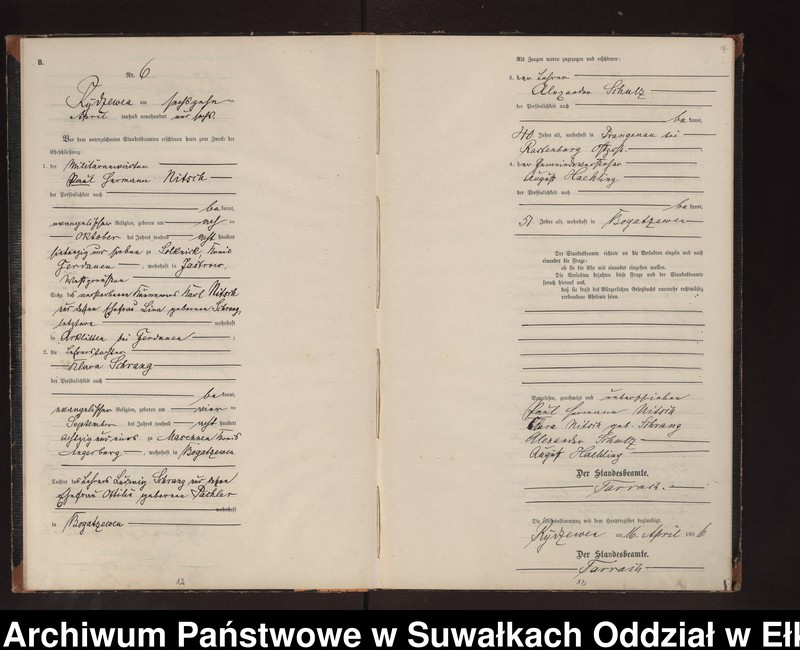 B.
Nr. 6
Rydzewen am sechszehn-
April tausend neunhundert und sechs.
Vor dem unterzeichneten Standesbeamten erschienen heute zum Zwecke der
Eheschließung:
1. der Militäranwärter
Paul Hermann Nitsch
der Persönlichkeit nach
be kannt,
evangelischer Religion, geboren am
Oktober des Jahres tausend acht hundert
siebenzig und sieben zu Solknick, Kreis
Gerdauen, wohnhaft in Jastrow,
Westpreußen
Sohn des verstorbenen Karl Nitsch
und dessen Ehefrau Lina geborenen Schrang,
letztere wohnhaft
in Arklitten bei Gerdauen ;
2. die Lehrerstochter
Klara Schrang
der Persönlichkeit nach
be kannt,
evangelischer Religion, geboren am vier-
September des Jahres tausend acht hundert
achtzig und zu Kreis
Angerburg, wohnhaft in Bogatzewen
Tochter des Lehrers Ludwig Schrang und dessen
Ehefrau Ottilie geborenen Pächler
wohnhaft
in Bogatzewen
12
Als Zeugen waren zugezogen und erschienen:
3. der Lehrer
Alexander Schulz
der Persönlichkeit nach
be kannt,
40 Jahre alt, wohnhaft in Prangenau bei
Rastenburg Ostpr.
4. der Gemeindevorsteher
August Haekling
der Persönlichkeit nach
be kannt,
51 Jahre alt, wohnhaft in Bogatzewen
Der Standesbeamte richtete an die Verlobten einzeln und nach
einander die Frage:
ob sie die Ehe mit einander eingehen wollen.
Die Verlobten bejahten diese Frage und der Standesbeamte
sprach hierauf aus,
daß sie kraft des Bürgerlichen Gesetzbuchs nunmehr rechtmäßig
verbundene Eheleute seien.
Vorgelesen, genehmigt und unterschrieben
Paul Hermann Nitsch
Klara Nitsch geb. Schrang
Alexander Schulz
August Haekling
Der Standesbeamte.
Tarrach.
Die Übereinstimmung mit dem Hauptregister beglaubigt.
Rydzewen am 16. April 1906
Der Standesbeamte.
Tarrach
13
Archiwum Państwowe w Suwałkach Oddział w Ełk